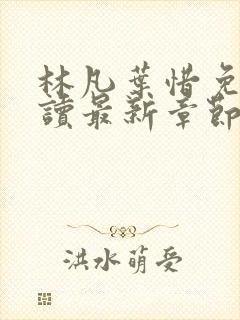 林凡葉惜免
讀最新章節
洪水萌受